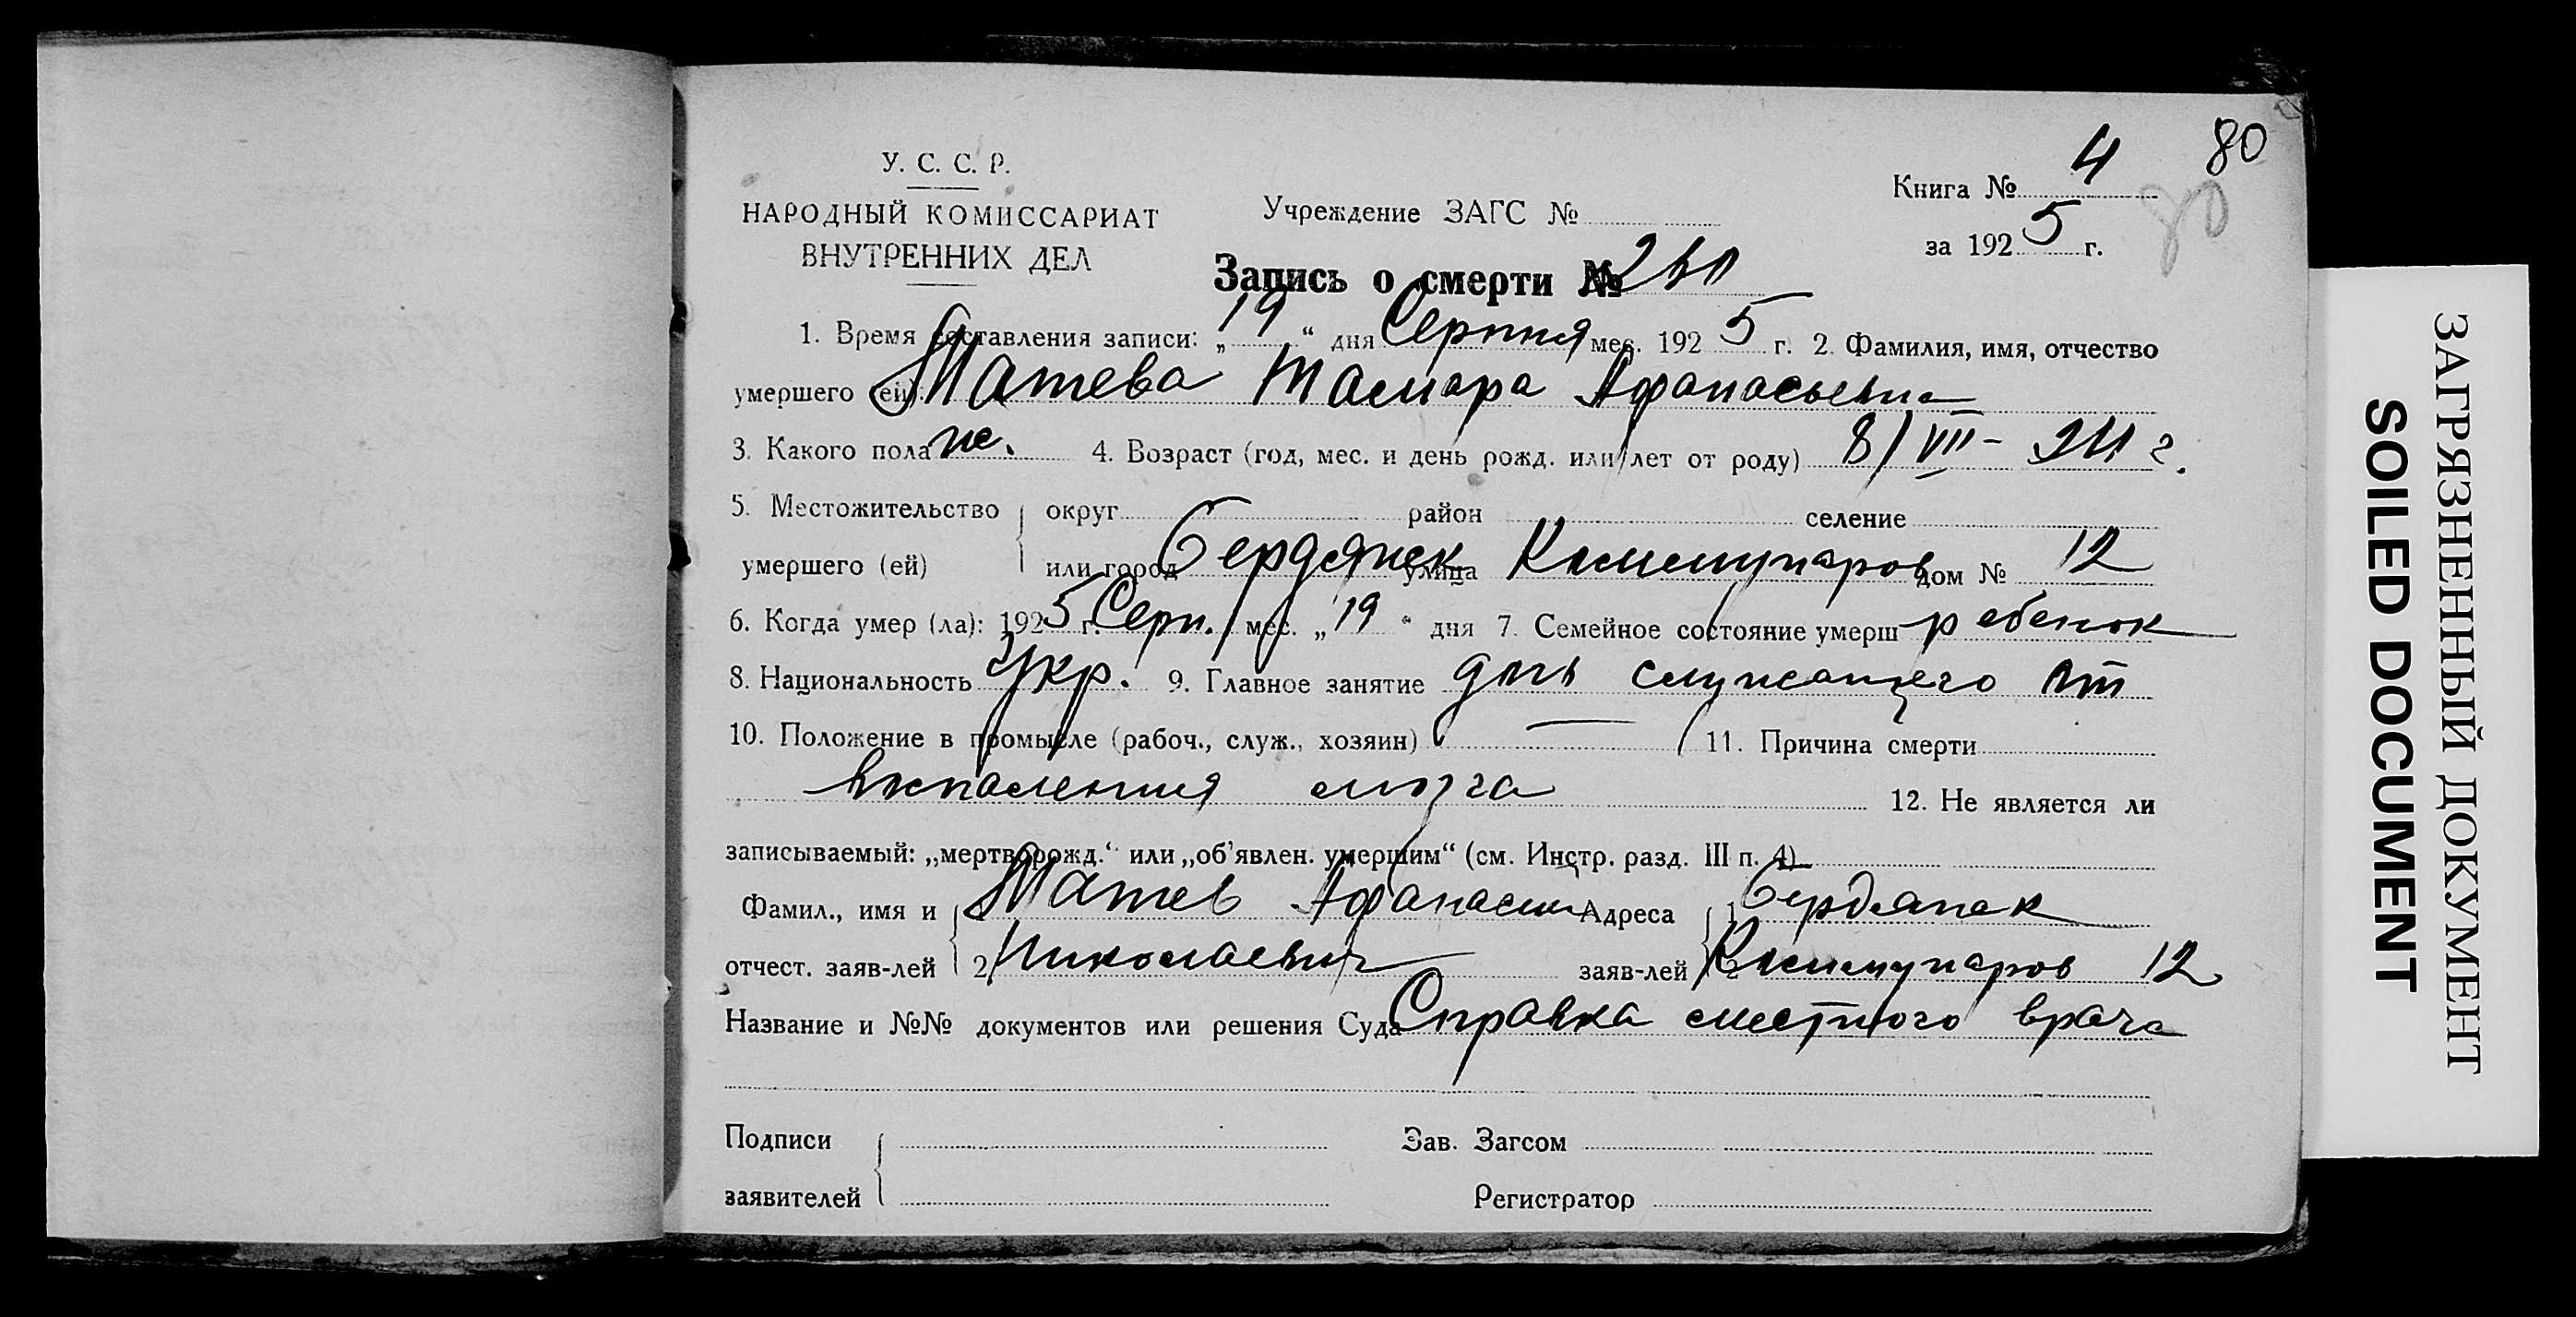 80
Книга № 4
80
за 1925 г.
У. С. С. Р.
НАРОДНЫЙ КОМИССАРИАТ
ВНУТРЕННИХ ДЕЛ
Учреждение ЗАГС №
Запись о смерти №
1. Время составления записи: „19“ дня Серпня мес. 1925 г. 2. Фамилия, имя, отчество
умершего (ей) Матева Тамара Афанасьевна
3. Какого пола ж. 4. Возраст (год, мес. и день рожд. или лет от роду) 8/VII-24 г.
5. Местожительство округ район селение
умершего (ей) или город Бердянск улица Коммунаров дом № 12
6. Когда умер (ла): 1925 г. Серп. мес. „19“ дня 7. Семейное состояние умерш ребенок
8. Национальность Укр. 9. Главное занятие дочь служащего
10. Положение в промысле (рабоч., служ., хозяин) — 11. Причина смерти
воспаления мозга 12. Не является ли
записываемый: „мертворожд.“ или „об'явлен. умершим“ (см. Инстр. разд. III п. 4)
Фамил., имя и 1 Матев Афанасий Адреса 1 Бердянск
отчест. заяв-лей 2 Николаевич заяв-лей 2 Коммунаров 12
Название и №№ документов или решения Суда Справка местного врача
Подписи Зав. Загсом
заявителей Регистратор
ЗАГРЯЗНЕННЫЙ ДОКУМЕНТ
SOILED DOCUMENT